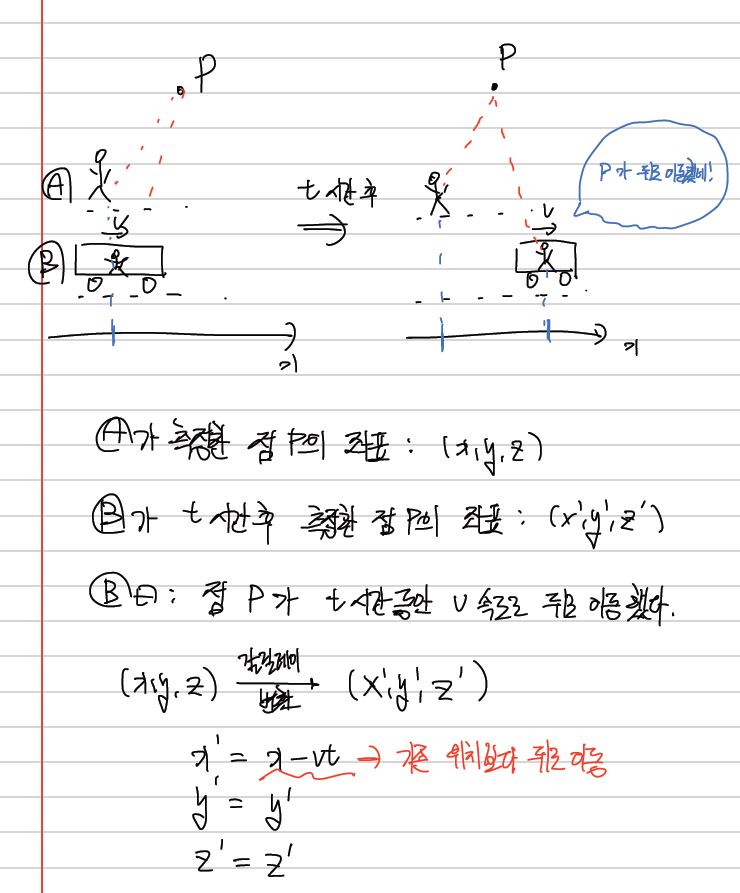 P
P
Ⓐ
t 시간 후
P가 뒤로 이동했네!
v
v
Ⓑ
x
x
Ⓐ가 측정한 점 P의 좌표 : (x, y, z)
Ⓑ가 t 시간 후 측정한 점 P의 좌표 : (x', y', z')
Ⓑ曰 : 점 P가 t시간 동안 v 속도로 뒤로 이동했다.
(x, y, z) 갈릴레이 변환 → (x', y', z')
x' = x - vt → 기존 위치보다 뒤로 이동
y' = y'
z' = z'